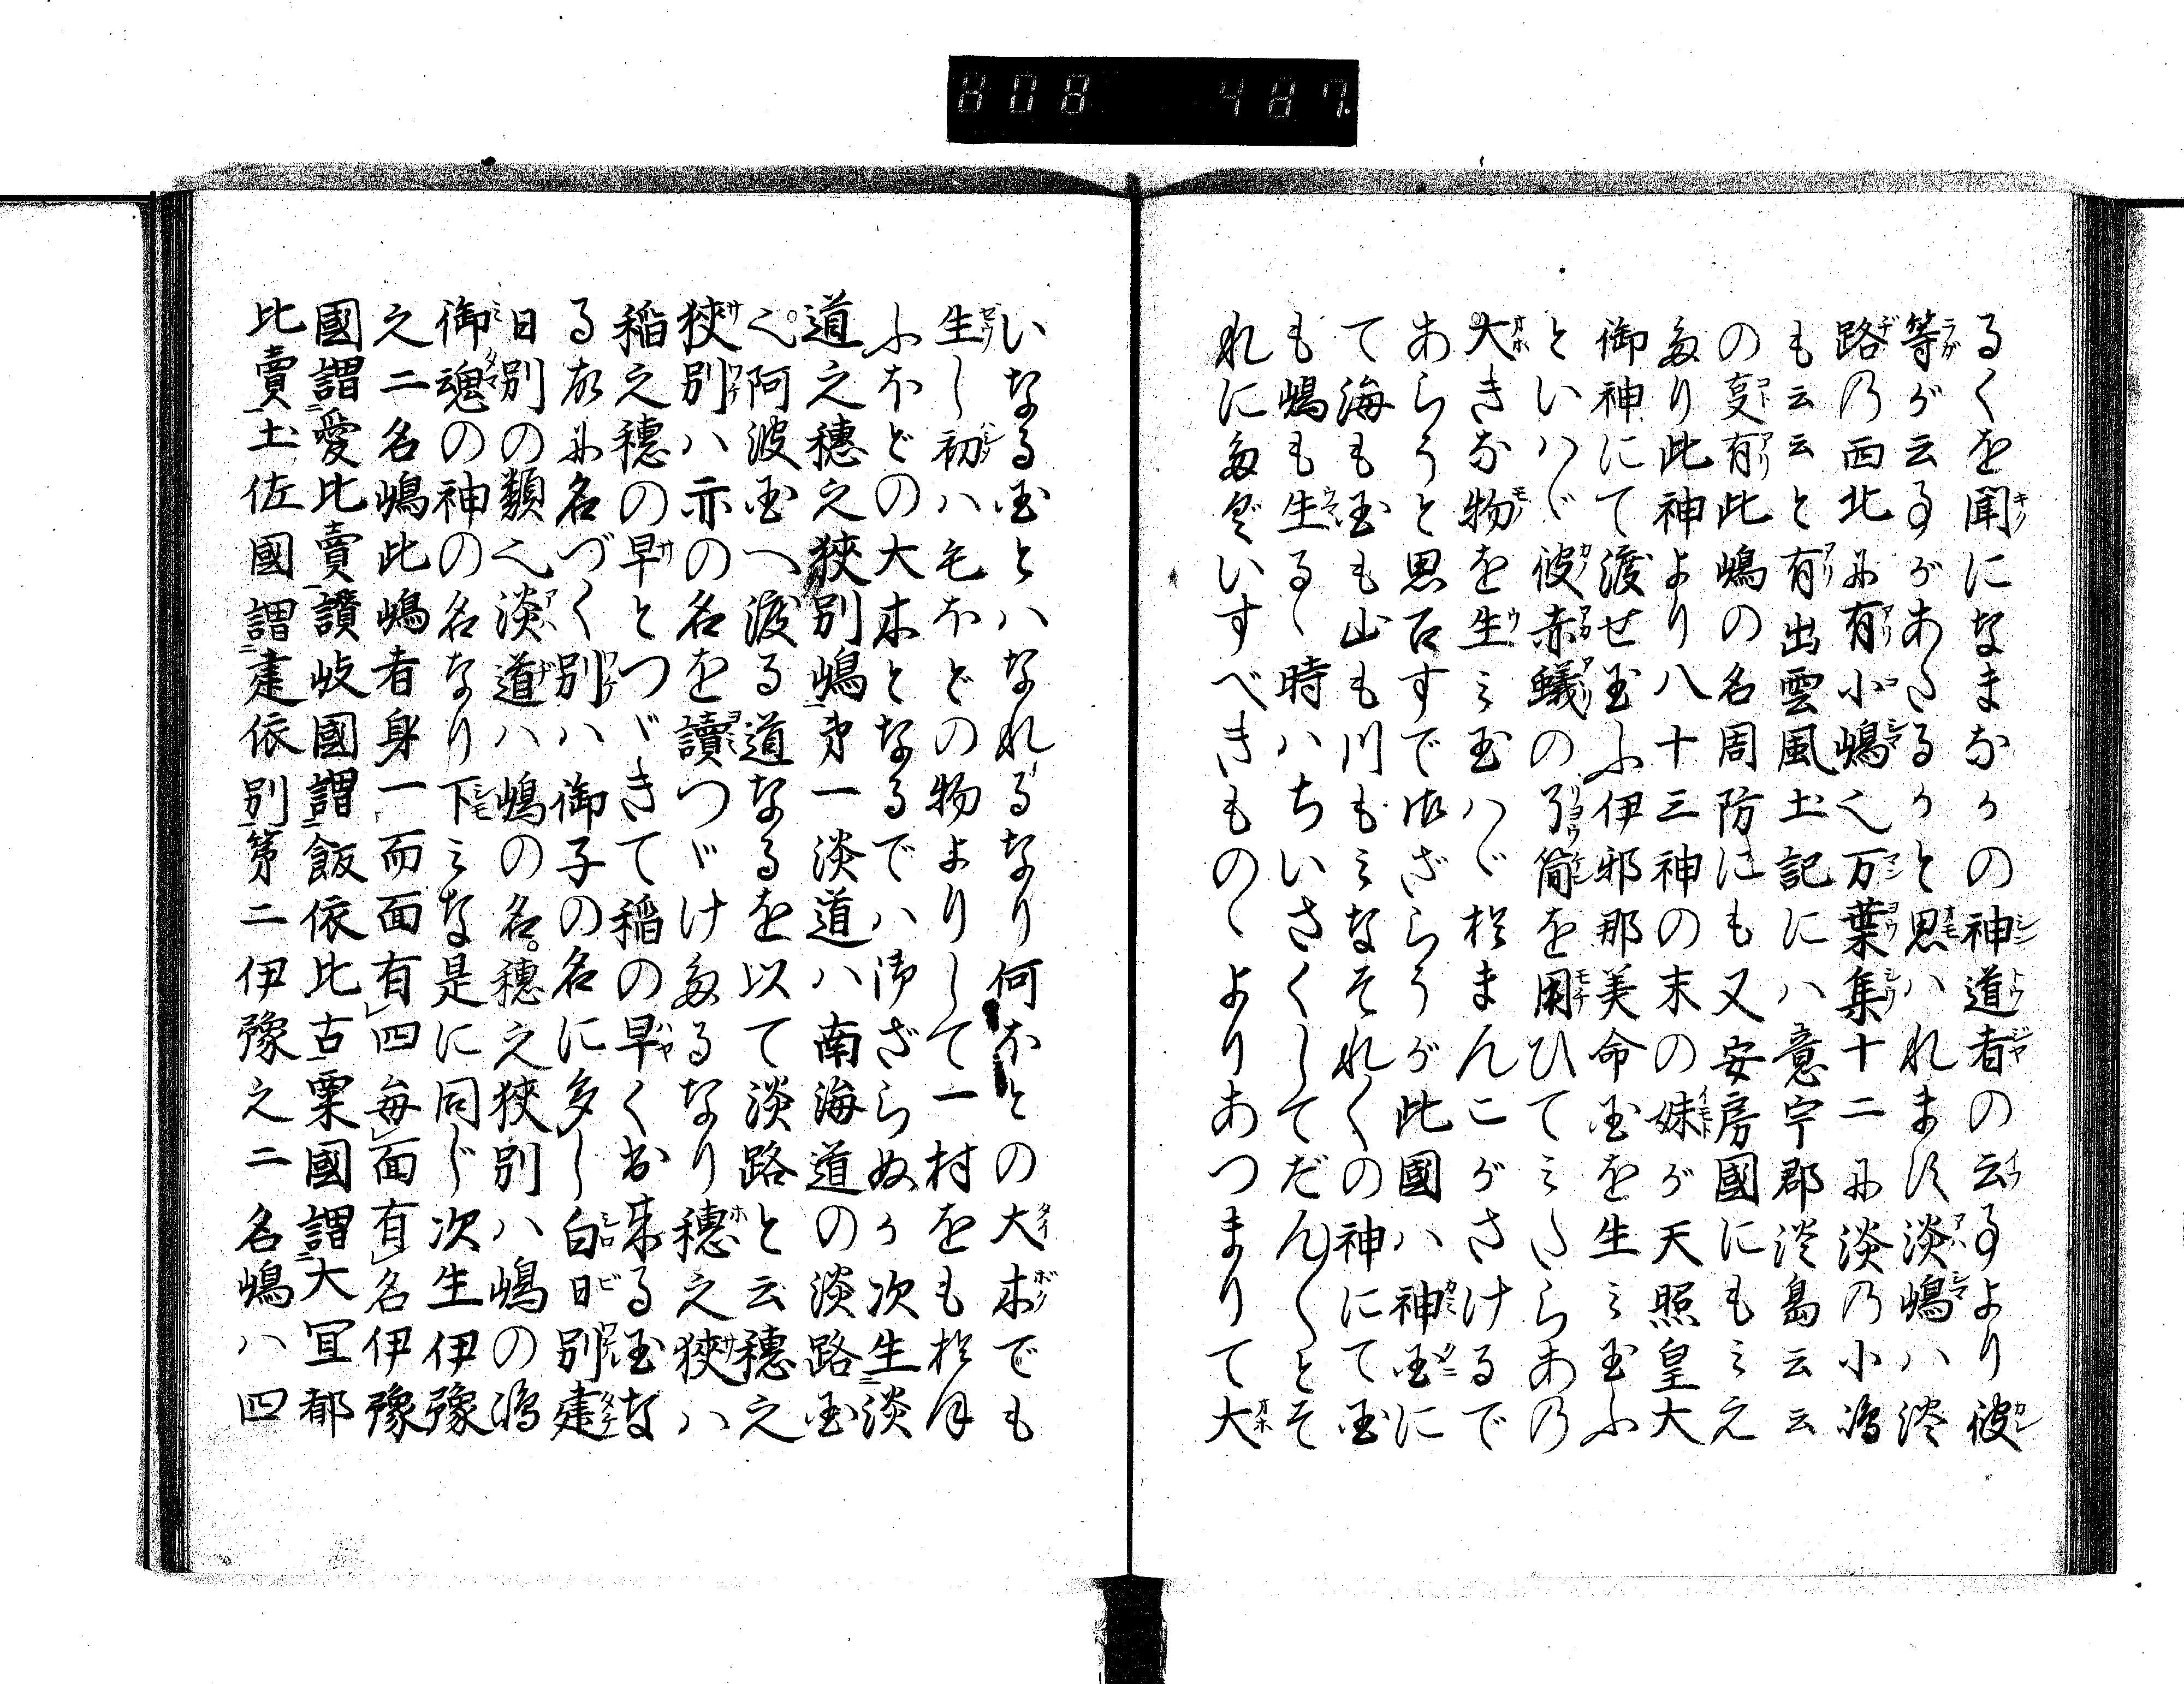 808 487
るくを聞になまなかの神道者の云事より彼
等が云事があたるかと思ハれます淡嶋ハ淡
路の西北に有小嶋也万葉集十二に淡の小嶋
も云云と有出雲風土記にハ意宇郡淡島云云
の㕝有此嶋の名周防にも又安房國にもミえ
たり此神より八十三神の末の妹が天照皇大
御神にて渡せ玉ふ伊邪那美命国を生ミ玉ふ
といハヾ彼赤蟻の了簡を用ひてミたらあの
大きな物を生ミ玉ハヾ於まんこがさけるで
あらうと思召すで御ざらうが此國ハ神国に
て海も国も山も川もミなそれ〱の神にて国
も嶋も生るゝ時ハちいさくしてだん〱とそ
れにたぐいすべきものゝよりあつまりて大
いなる国とハなれるなり何ほとの大木でも
生し初ハ毛ほどの物よりして一村をも於ほ
ふほどの大木となるでハ御ざらぬか次生淡
道之穂之狹別嶋第一淡道ハ南海道の淡路国
也阿波国へ渡る道なるを以て淡路と云穂之
狹別ハ亦の名を讀つゞけたるなり穂之狹ハ
稲之穂の早とつゞきて稲の早く出来る国な
る故に名づく別ハ御子の名に多し白日別建
日別の類也淡道ハ嶋の名穂之狹別ハ嶋の
御魂の神の名なり下ミな是に同じ次生伊豫
之二名嶋此嶋者身一而面有四毎面有名伊豫
國謂愛比賣讃岐國謂飯依比古粟國謂大宜都
比賣土佐國謂建依別第二伊豫之二名嶋ハ四